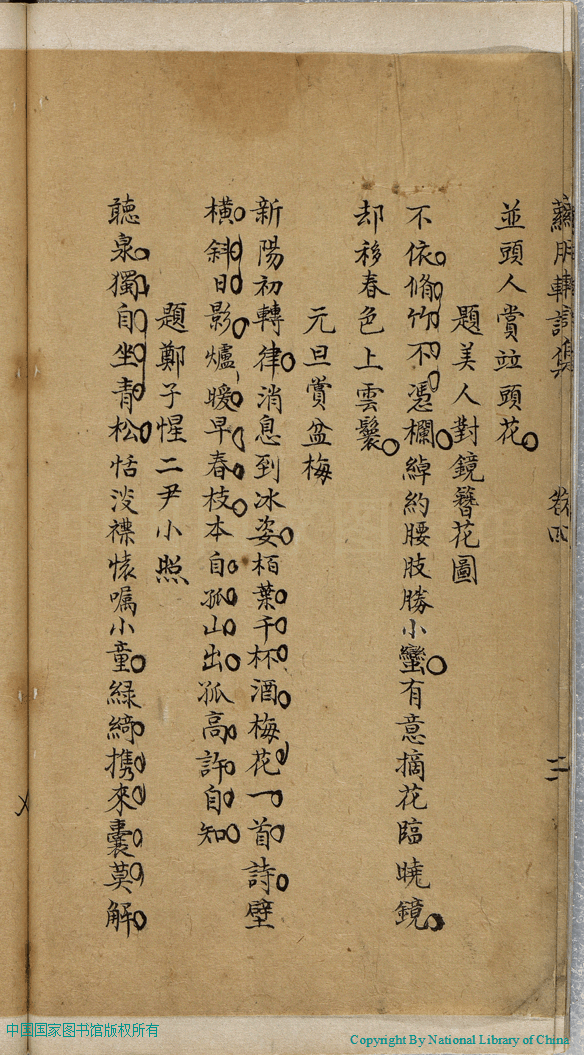 並頭人賞竝頭花
題美人對鏡簪花圖
不依脩竹不憑欄綽約腰肢勝小蠻有意摘花臨曉鏡
却移春色上雲鬟
元旦賞盆梅
新陽初轉律消息到冰姿栢葉千杯酒梅花一首詩壁
橫斜日影爐暖早春枝本自孤山出孤高許自知
題鄭子惺二尹小照
聽泉獨自坐青松恬淡襟懐囑小童綠綺携來囊莫解
卷四
二
中国国家图书馆版权所有
Copyright By National Library of China